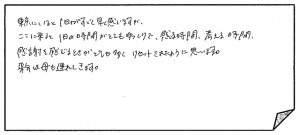 東京にいると1日がすごく早く感じますが、
ここに来ると1日の時間がとてもゆっくりで、感じる時間、考える時間、
感謝を感じるときがとても多くリセットされたように思います。
来年は母も連れてきます。